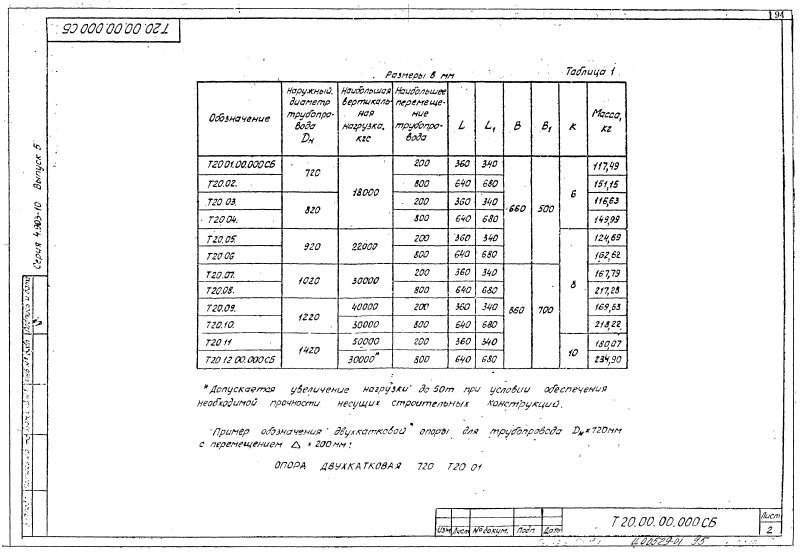 94
Т20.00.00.000 СБ
Размеры в мм
Таблица 1
Обозначение | Наружный диаметр трубопровода Dн | Наибольшая вертикальная нагрузка, кгс | Наибольшее перемещение трубопровода | L | L1 | B | B1 | К | Масса, кг
Т20 01.00.000СБ | 720 | 18000 | 200 | 360 | 340 | 660 | 500 | 6 | 117,49
Т20.02. | 800 | 640 | 680 | 151,15
Т20 03. | 820 | 200 | 360 | 340 | 116,63
Т20 04. | 800 | 640 | 680 | 149,99
Т20.05. | 920 | 22000 | 200 | 360 | 340 | 8 | 124,69
Т20 06 | 800 | 640 | 680 | 162,62
Т20.07. | 1020 | 30000 | 200 | 360 | 340 | 860 | 700 | 167,79
Т20.08. | 800 | 640 | 680 | 217,28
Т20.09. | 1220 | 40000 | 200 | 360 | 340 | 169,63
Т20.10. | 30000 | 800 | 640 | 680 | 218,22
Т20 11 | 1420 | 50000 | 200 | 360 | 340 | 10 | 180,07
Т20 12 00.000СБ | 30000* | 800 | 640 | 680 | 234,90
*Допускается увеличение нагрузки до 50т при условии обеспечения
необходимой прочности несущих строительных конструкций.
Пример обозначения двухкатковой опоры для трубопровода Dн × 720мм
с перемещением Δ = 200мм:
ОПОРА ДВУХКАТКОВАЯ 720 Т20 01
Серия 4.903-10 Выпуск 5
Изм Лист № докум. Подп Дата
Т 20.00.00.000 СБ
Лист
2
Ц00529-01 95